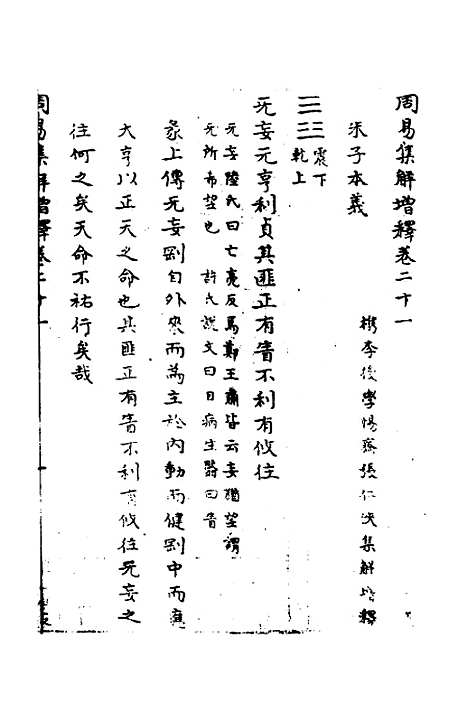 周易集解增釋卷二十一
檇李後學惕齋張仁浹集解增釋
朱子本義
震下
乾上
无妄元亨利貞其匪正有眚不利有攸往
无妄陸氏曰亡亮反馬鄭王肅皆云妄猶望謂
无所希望也 許氏說文曰目病生翳曰眚
彖上傳无妄剛自外來而為主於內動而健剛中而應
大亨以正天之命也其匪正有眚不利有攸往无妄之
往何之矣天命不祐行矣哉
周易集解增釋卷二十一